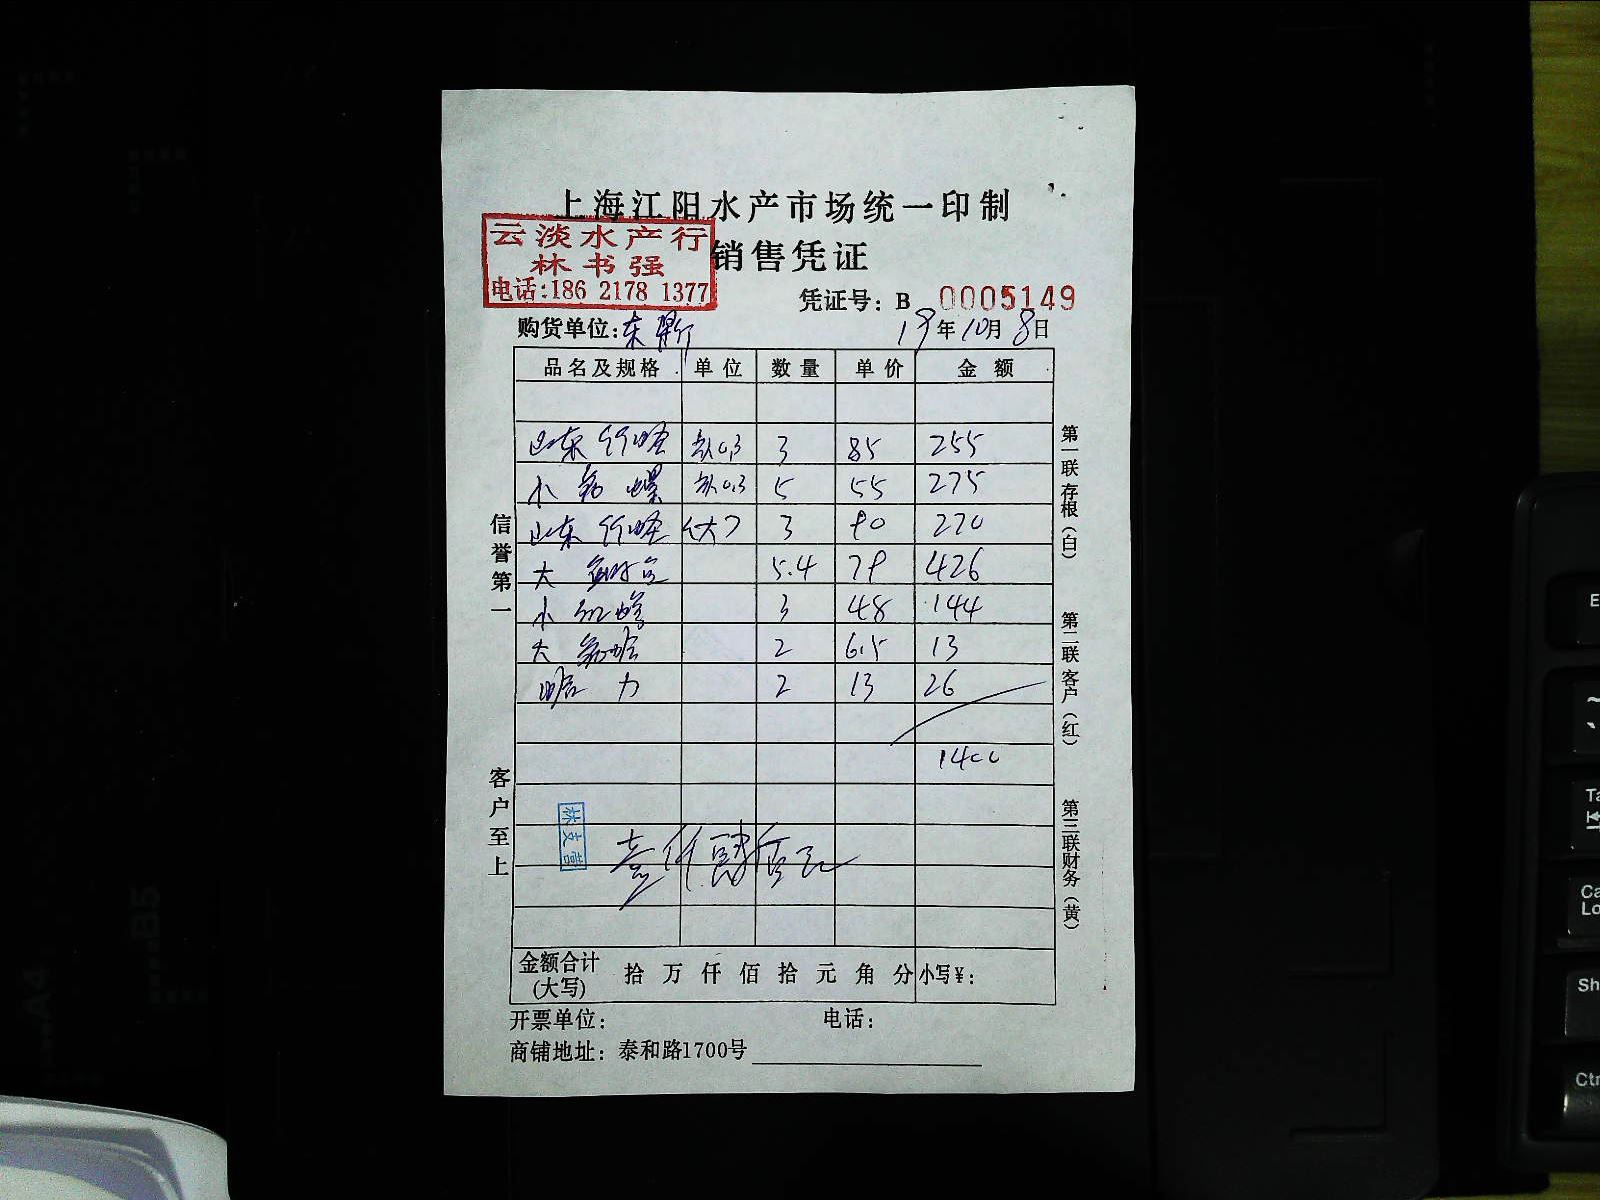 上海江阳水产市场统一印制
销售凭证
云淡水产行
林书强
电话:186 2178 1377
凭证号: B 0005149
购货单位: 东
19年10月8日
品名及规格 单位 数量 单价 金额
山东竹蛏 0.3 3 85 255
小 螺 0.3 5 55 275
山东竹蛏 (大) 3 90 270
大 5.4 79 426
小 3 48 144
大 2 6.5 13
蛤力 2 13 26
1400
壹仟肆佰元
金额合计(大写) 拾万仟佰拾元角分 小写¥:
开票单位: 电话:
商铺地址: 泰和路1700号
信誉第一
客户至上
第一联 存根(白)
第二联 客户(红)
第三联 财务(黄)